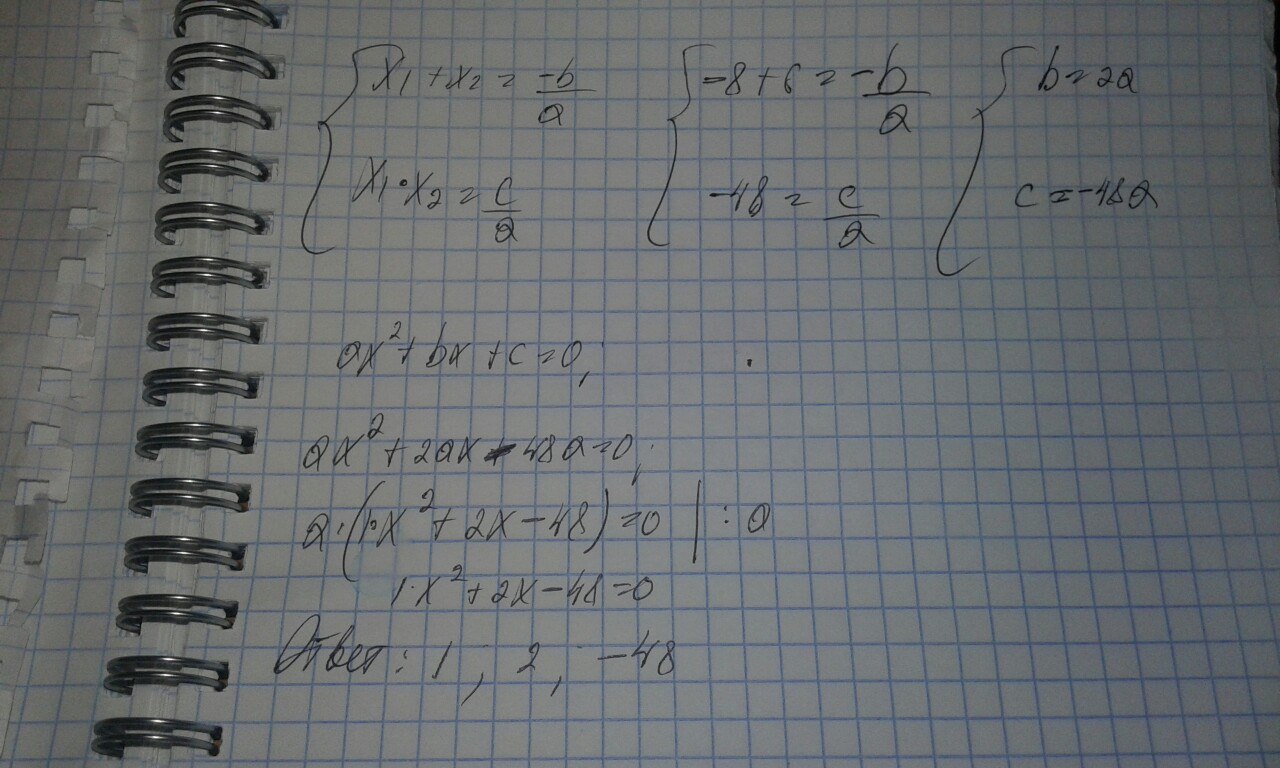 { x₁ + x₂ = -b/a { -8 + 6 = -b/a { b = 2a
x₁ · x₂ = c/a -48 = c/a c = -48a
ax² + bx + c = 0;
ax² + 2ax - 48a = 0;
a · (1·x² + 2x - 48) = 0 | : a
1·x² + 2x - 48 = 0
Ответ: 1, 2, -48